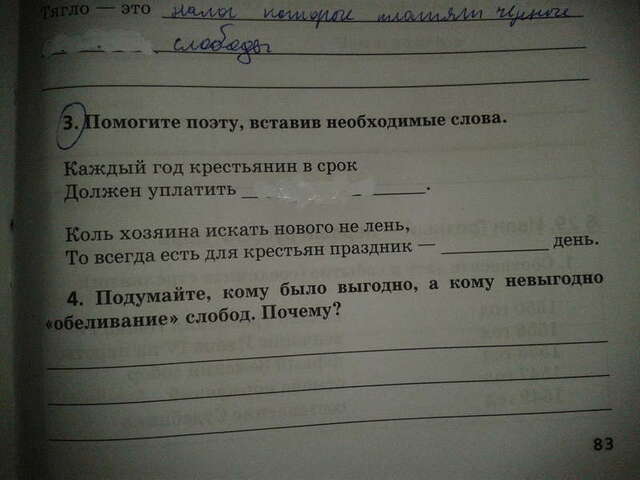 Тягло — это налог которой платили чёрные
слободы
3. Помогите поэту, вставив необходимые слова.
Каждый год крестьянин в срок
Должен уплатить _ _____.
Коль хозяина искать нового не лень,
То всегда есть для крестьян праздник — __________ день.
4. Подумайте, кому было выгодно, а кому невыгодно
«обеливание» слобод. Почему?
83